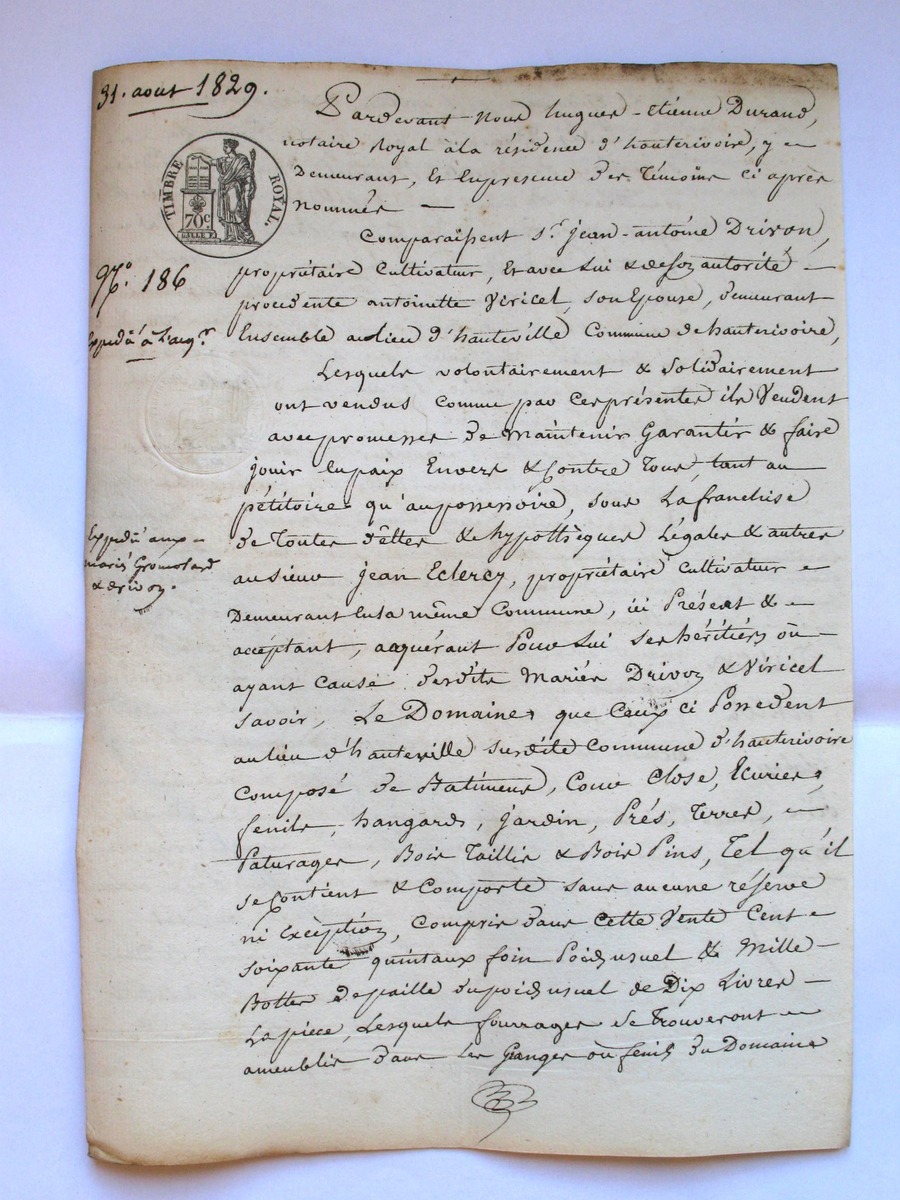 31. aout 1829.
TIMBRE ROYAL.
70 c.
N.° 186
Expedié à l'acq.r
Expedié aux
mariés Gromolard
& drivon.
Pardevant Nous hugues-étienne Durand,
notaire Royal à la résidence d'hauterivoire, y
Demeurant, Et En presence des Témoins ci après
nommés
Comparaissent s.r jean-antoine Drivon,
propriétaire Cultivateur, Et avec lui & de son autorité
procedente antoinette Viricel, son Epouse, demeurant
Ensemble au lieu d'hauteville Commune de hauterivoire,
Lesquels volontairement & solidairement
ont vendus comme par ces présentes ils Vendent
avec promesses de maintenir Garantir & faire
jouir en paix Envers & Contre Tous, tant au
pétitoire qu'au possessoire, sous La franchise
de Toutes dêttes & hypothèques Légales & autres
au sieur jean Eclercy, propriétaire Cultivateur
Demeurant en la même Commune, ici Présent &
acceptant, acquérant Pour lui ses héritiers ou
ayant Cause desdits Mariés Drivon & Viricel
savoir, Le Domaine, que Ceux ci Possedent
au lieu d'hauteville susdite Commune d'hauterivoire
Composé de Batimens, Cour Close, Ecuries,
fenils, hangards, jardin, Prés, Terres,
Paturages, Bois Taillis & Bois Pins, Tel qu'il
se Contient & Comporte sans aucune réserve
ni Excèption, Compris dans Cette Vente Cent
soixante quintaux foin Poids usuel & Mille
Bottes de paille du poids usuel de Dix Livres
La piece, Lesquels fourrages se Trouveront
ameublis dans les Granges ou fenils du Domaine